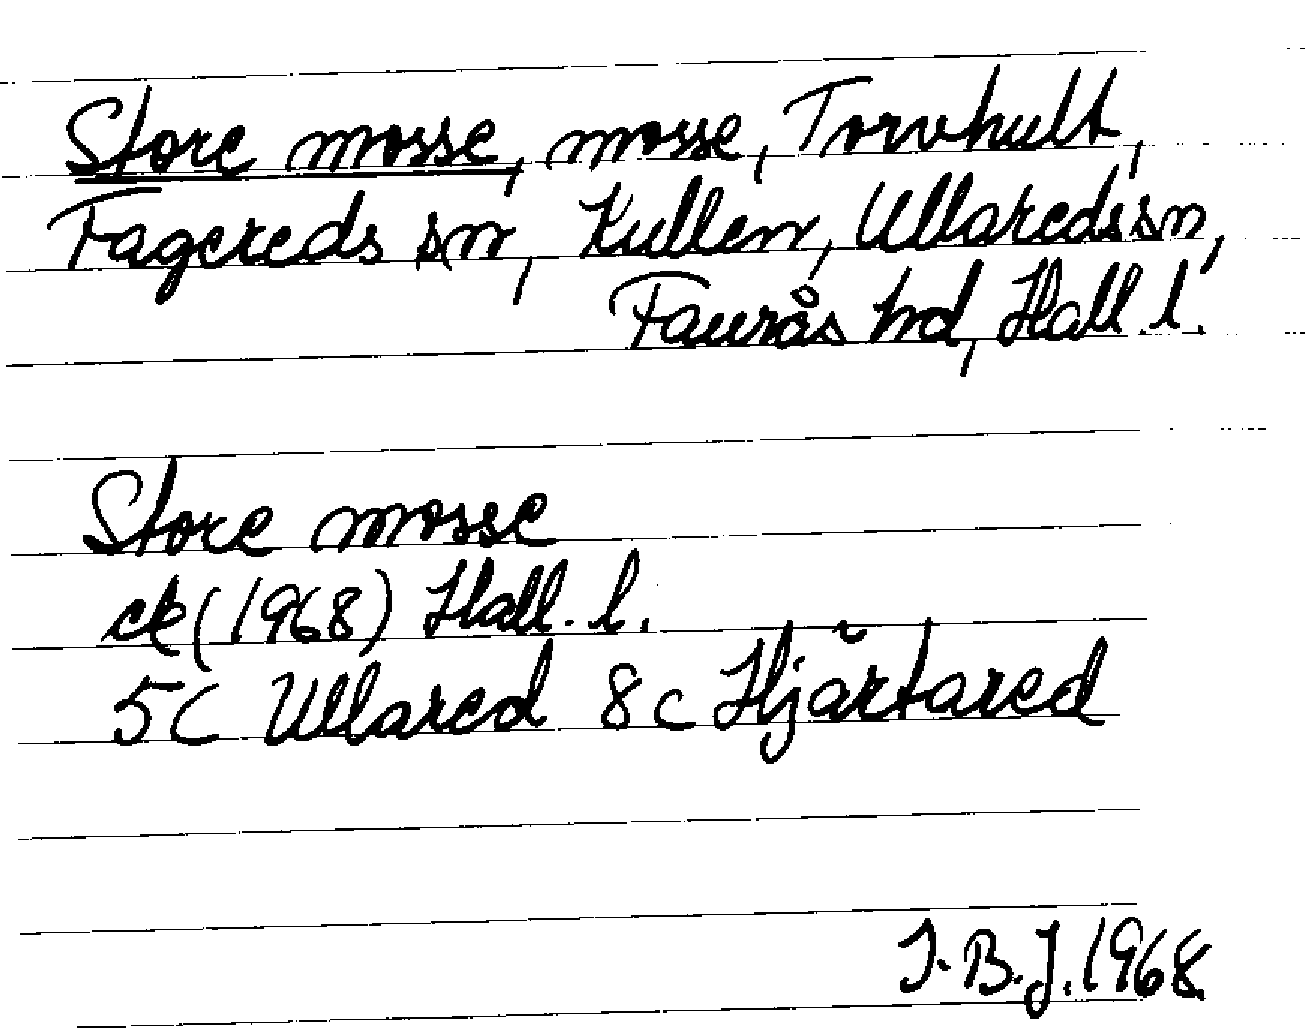 Store mosse, mosse, Torvhult,
Fagereds sn, Kullen, Ullareds sn,
Faurås hd, Hall. l.
Store mosse
ek (1968) Hall. l.
5c Ullared 8c Hjärtared
J. B. J. 1968.